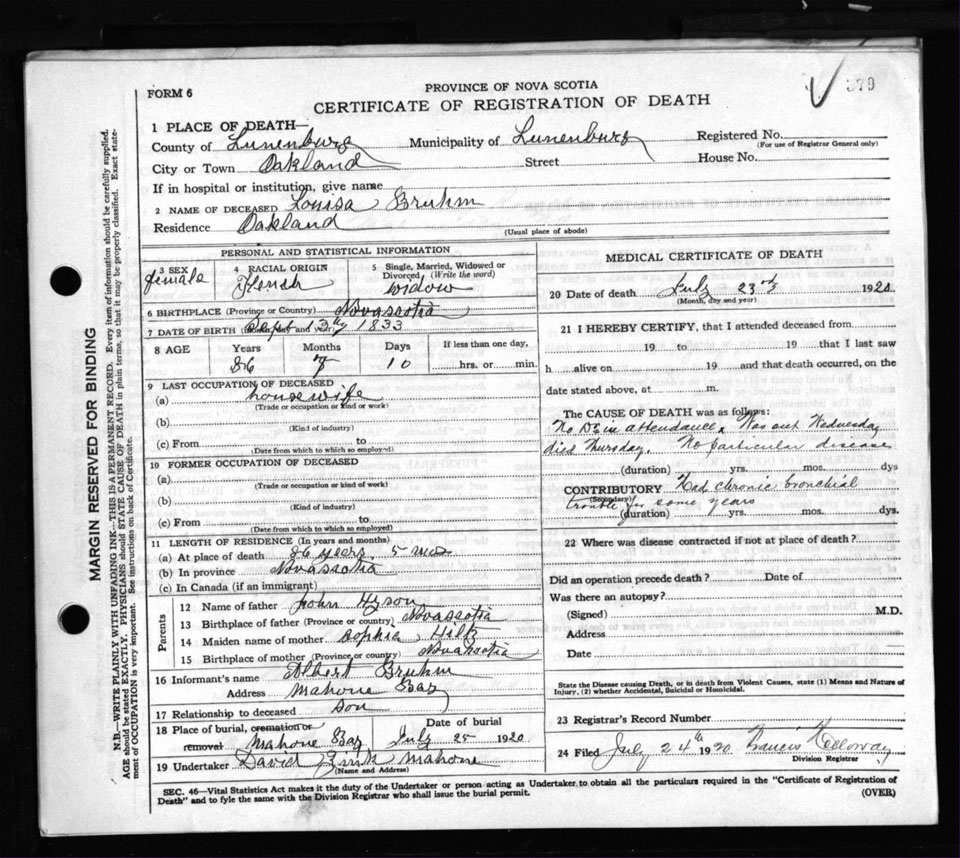 FORM 6
PROVINCE OF NOVA SCOTIA
CERTIFICATE OF REGISTRATION OF DEATH
379
1 PLACE OF DEATH—
County of Lunenburg Municipality of Lunenburg Registered No.
(For use of Registrar General only)
City or Town Oakland Street House No.
If in hospital or institution, give name
2 NAME OF DECEASED Louisa Bruhm
Residence Oakland
(Usual place of abode)
PERSONAL AND STATISTICAL INFORMATION
3 SEX 4 RACIAL ORIGIN 5 Single, Married, Widowed or
Divorced (Write the word)
female French widow
6 BIRTHPLACE (Province or Country) Novascotia
7 DATE OF BIRTH Sept 1833
8 AGE Years Months Days If less than one day,
86 10 hrs. or min.
9 LAST OCCUPATION OF DECEASED
(a) housewife
(Trade or occupation or kind or work)
(b)
(Kind of industry)
(c) From to
(Date from which to which so employed)
10 FORMER OCCUPATION OF DECEASED
(a)
(Trade or occupation or kind of work)
(b)
(Kind of industry)
(c) From to
(Date from which to which so employed)
11 LENGTH OF RESIDENCE (In years and months)
(a) At place of death 86 years 5 mos
(b) In province Novascotia
(c) In Canada (if an immigrant)
Parents
12 Name of father John Hyson
13 Birthplace of father (Province or country) Novascotia
14 Maiden name of mother Sophia Hiltz
15 Birthplace of mother (Province or country) Novascotia
16 Informant's name Albert Bruhm
Address Mahone Bay
17 Relationship to deceased son
18 Place of burial, cremation or Date of burial
removal Mahone Bay July 25 1920
19 Undertaker David Zink Mahone
(Name and Address)
MEDICAL CERTIFICATE OF DEATH
20 Date of death July 23 1920.
(Month, day and year)
21 I HEREBY CERTIFY, that I attended deceased from
19 to 19 that I last saw
h alive on 19 and that death occurred, on the
date stated above, at m.
The CAUSE OF DEATH was as follows:
No Dr in attendance. Was out Wednesday
died Thursday. No particular disease
(duration) yrs. mos. dys
CONTRIBUTORY Had chronic bronchial
(Secondary)
trouble for some years
(duration) yrs. mos. dys.
22 Where was disease contracted if not at place of death?
Did an operation precede death? Date of
Was there an autopsy?
(Signed) M.D.
Address
Date
State the Disease causing Death, or in death from Violent Causes, state (1) Means and Nature of
Injury, (2) whether Accidental, Suicidal or Homicidal.
23 Registrar's Record Number
24 Filed July 24th 1920 Francis
Division Registrar
SEC. 46—Vital Statistics Act makes it the duty of the Undertaker or person acting as Undertaker to obtain all the particulars required in the "Certificate of Registration of
Death" and to fyle the same with the Division Registrar who shall issue the burial permit.
(OVER)
MARGIN RESERVED FOR BINDING
N.B.—WRITE PLAINLY WITH UNFADING INK—THIS IS A PERMANENT RECORD. Every item of information should be carefully supplied.
AGE should be stated EXACTLY. PHYSICIANS should STATE CAUSE OF DEATH in plain terms, so that it may be properly classified. Exact state-
ment of OCCUPATION is very important. See instructions on back of Certificate.